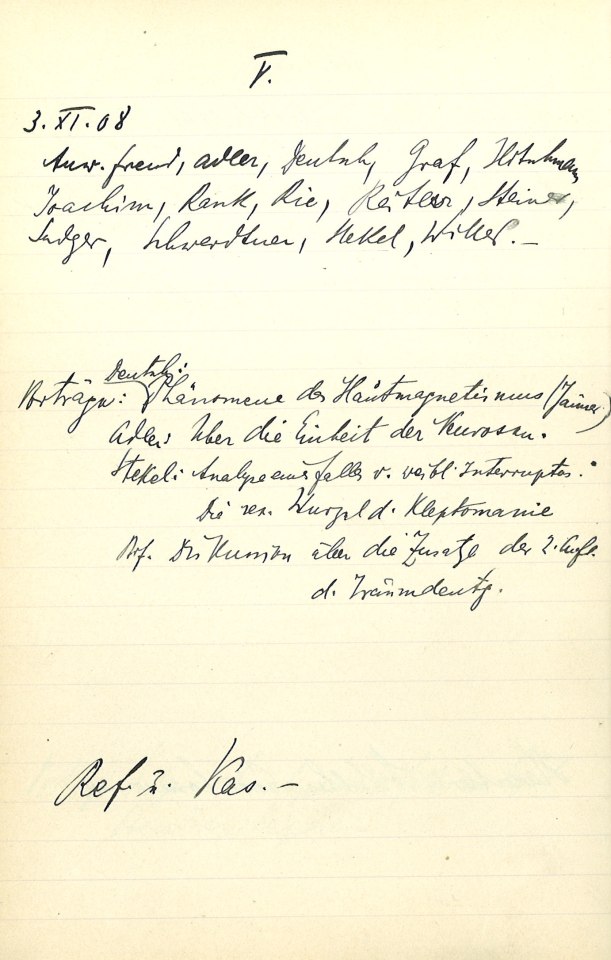 V.
3. XI. 08
Anw. Freud, Adler, Deutsch, Graf, Hitschmann,
Joachim, Rank, Rie, Reitler, Steiner,
Sadger, Schwerdtner, Stekel, Wittels. –
Deutsch:
Vorträge: Phänomene des Hautmagnetismus (Jänner)
Adler: Über die Einheit der Neurosen.
Stekel: Analyse eines Falles v. weibl. Interruptus.
Die sex. Wurzel d. Kleptomanie
Prof. Diskussion über die Zusätze der 2. Aufl.
d. Traumdeutg.
Ref. u. Kas. –